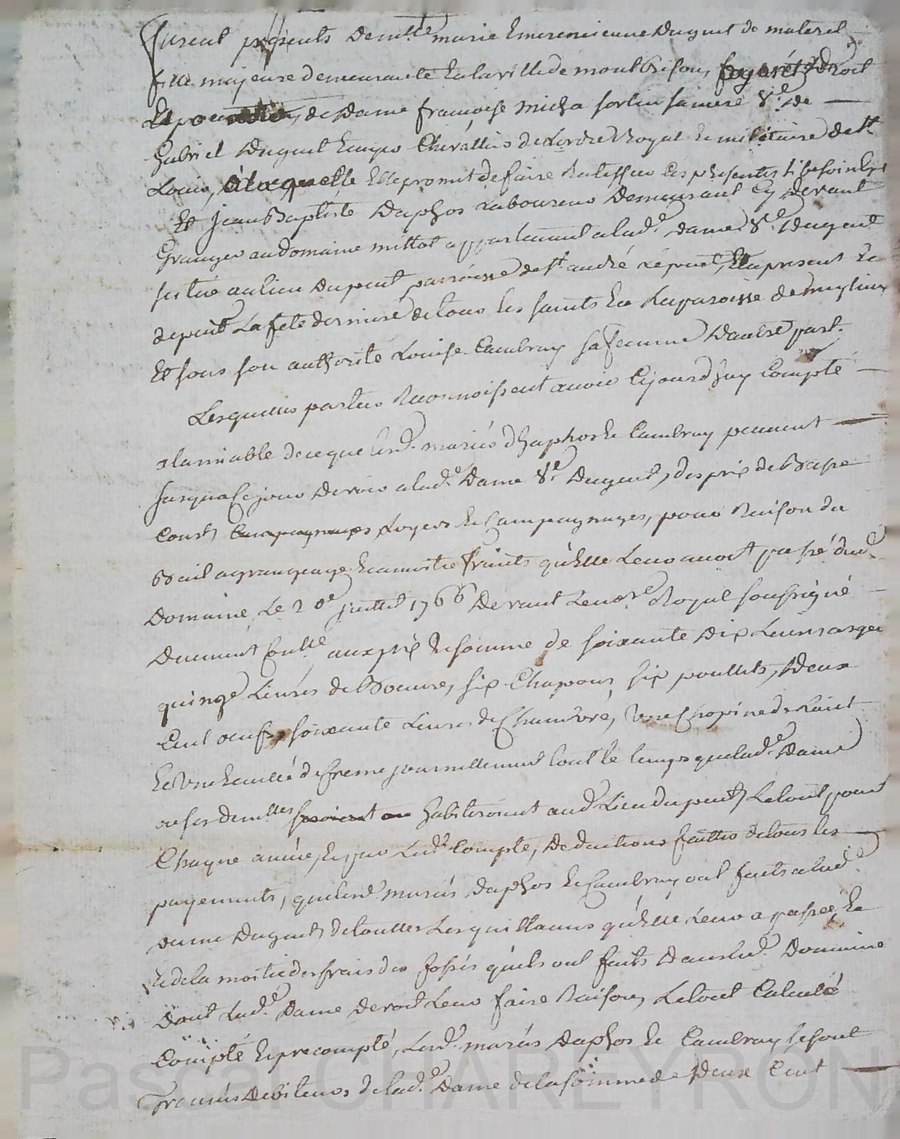 furent présents demlle marie Emerencienne Duguet de materel
fille majeure demeurante En la ville de montbrison, droit
de Dame françoise micha sa mere Ve de
Gabriel Duguet Chevallier de Lordre Royal Et militaire de St
Louis, a laquelle Elle promet de faire Ratiffier Les présentes si besoin Est
Et Jean Baptiste Daphos Laboureur Demeurant Cy devant
Granger au domaine mittot appartenant a lad. dame Ve Duguet
situé au lieu Dupuit, parroisse de St andré Lepuit, Et a present Et
depuis La fete derniere de tous les saints En La paroisse de
Et sous son authorité Louise Cambray sa femme Dautre part.
Lesquelles parties Reconnoissent avoir Cejourdhuy Compté
a lamiable de ce que lesd. mariés Daphos Et Cambray peuvent
jusqua Ce jour devoir a lad. Dame Ve Duguet, des prix de
Loyers Et Campagnages, pour Raison du
Bail a grangeage Et amoitié fruits qu'Elle Leur avoit passé dud.
Domaine, Le 20e juillet 1766 Devant Le nore Royal soussigné
Duement Conllé aux prix Et somme de soixante Dix Livres argent
quinze Livres de Beurre, six Chapons, six poullets, Deux
Cent oeufs, soixante Livres de Chanvre, Une Chopine de Lait
Et Une de Creme journellement tout le temps que lad. Dame
ou ses demlles habiteront aud. Lieu du puit, Le tout pour
Chaque année, Et par Led. Compte, Deductions faittes de tous les
payements, que lesd. mariés Daphos Et Cambray ont faits a lad.
dame Duguet, de touttes Les quittances qu'Elle Leur a passé, Et
Et de la moitié des frais des fossés qu'ils ont faits Dans led. Domaine
Dont Lad. Dame devoit Leur faire Raison, Le tout Calculé
Compté Et precompté, Lesd. mariés Daphos Et Cambray se sont
Trouvés Debiteurs de lad. Dame de la somme de Deux Cent
Pascal CHAREYRON